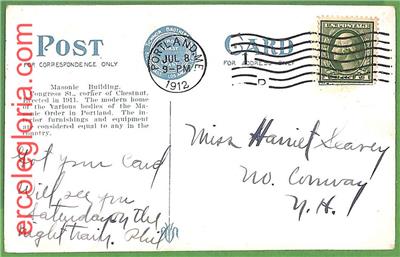 POST
FOR CORRESPONDENCE ONLY
CARD
FOR ADDRESS ONLY
PORTLAND, ME.
JUL 8
9-PM
1912
Masonic Building.
Congress St., corner of Chestnut,
erected in 1911. The modern home
of the Various bodies of the Ma-
sonic Order in Portland. The in-
terior furnishings and equipment
are considered equal to any in the
country.
Got your Card
Will see you
Saturday on the
night train. Phil
Miss Harriet Seavey
No. Conway
N. H.
ercolegloria.com